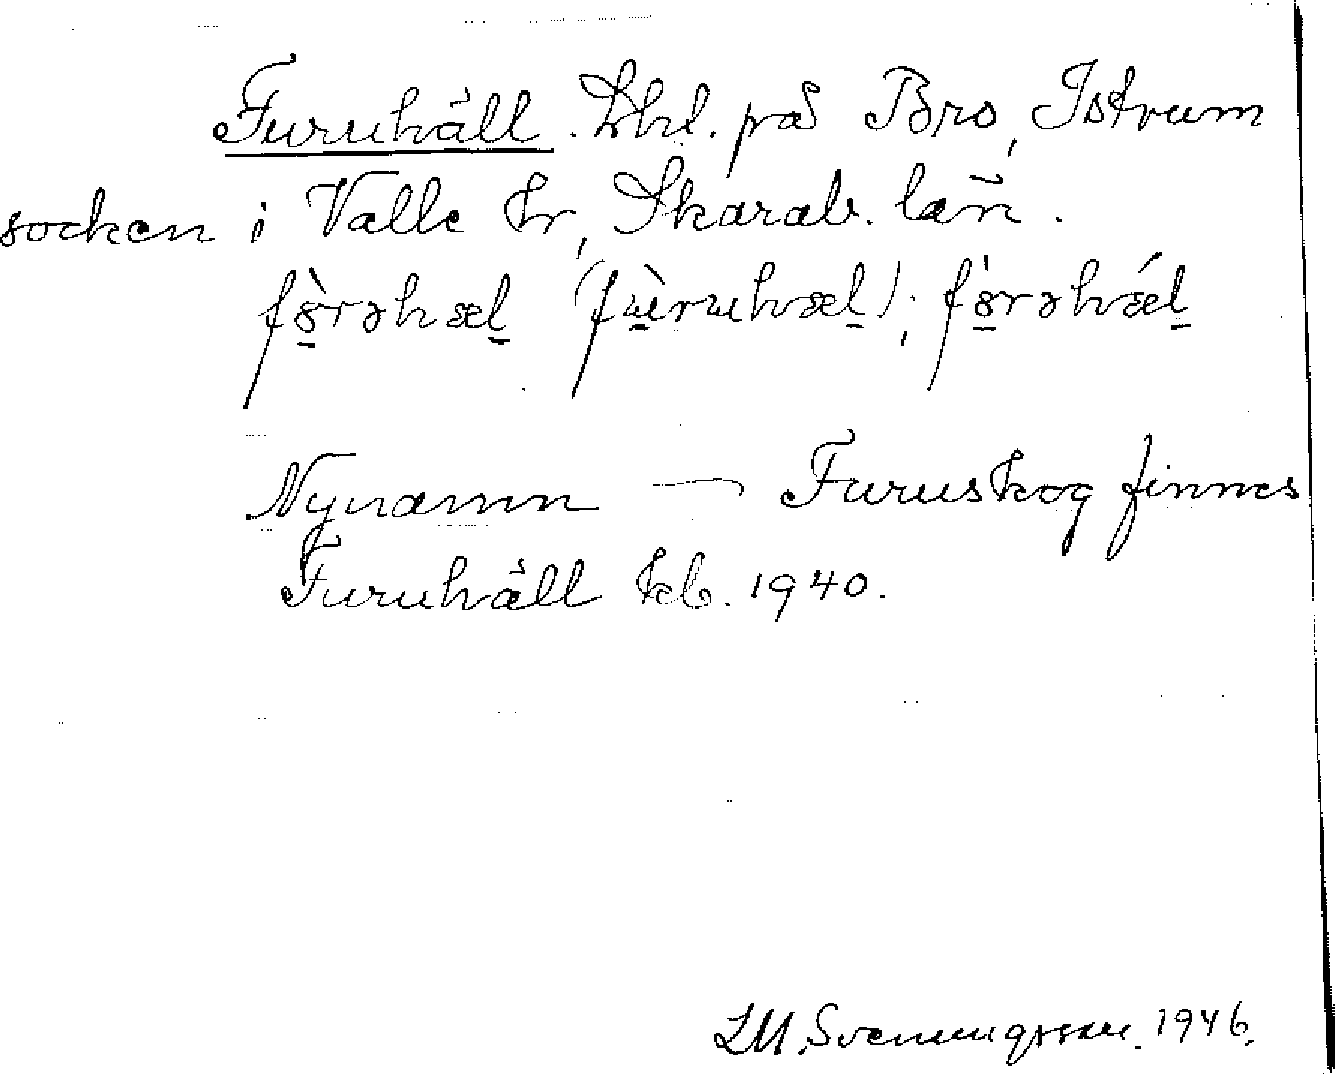 Furuhäll. Lht. på Bro, Istrum
socken i Valle hr, Skarab. län.
fòrəhæl (fùruhæl); fòrəhǽl
Nynamn — Furuskog finnes
Furuhäll kb. 1940.
LM. Svenungsson. 1946.